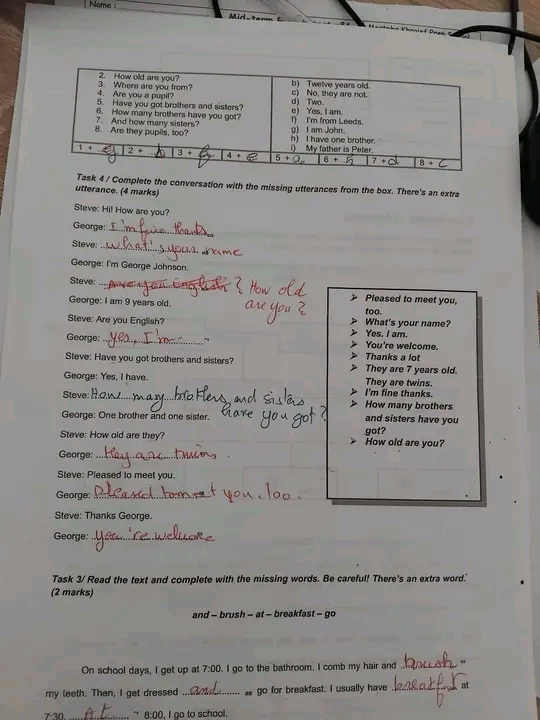 Name :
Mid-term
2. How old are you?
3. Where are you from?
4. Are you a pupil?
5. Have you got brothers and sisters?
6. How many brothers have you got?
7. And how many sisters?
8. Are they pupils, too?
b) Twelve years old.
c) No, they are not.
d) Two.
e) Yes, I am.
f) I'm from Leeds.
g) I am John.
h) I have one brother.
i) My father is Peter.
1 + g 2 + b 3 + f 4 + e 5 + a 6 + h 7 + d 8 + c
Task 4 / Complete the conversation with the missing utterances from the box. There's an extra
utterance. (4 marks)
Steve: Hi! How are you?
George: I'm fine thanks
Steve: what's your name
George: I'm George Johnson.
Steve: are you English? How old
are you?
George: I am 9 years old.
Steve: Are you English?
George: yes, I'm
Steve: Have you got brothers and sisters?
George: Yes, I have.
Steve: How many brothers and sisters
have you got?
George: One brother and one sister.
Steve: How old are they?
George: they are twins.
Steve: Pleased to meet you.
George: Pleased to meet you, too.
Steve: Thanks George.
George: you're welcome
➢ Pleased to meet you,
too.
➢ What's your name?
➢ Yes. I am.
➢ You're welcome.
➢ Thanks a lot
➢ They are 7 years old.
They are twins.
➢ I'm fine thanks.
➢ How many brothers
and sisters have you
got?
➢ How old are you?
Task 3/ Read the text and complete with the missing words. Be careful! There's an extra word.
(2 marks)
and – brush – at – breakfast – go
On school days, I get up at 7:00. I go to the bathroom. I comb my hair and brush
my teeth. Then, I get dressed and go for breakfast. I usually have breakfast at
7:30. At 8:00, I go to school.